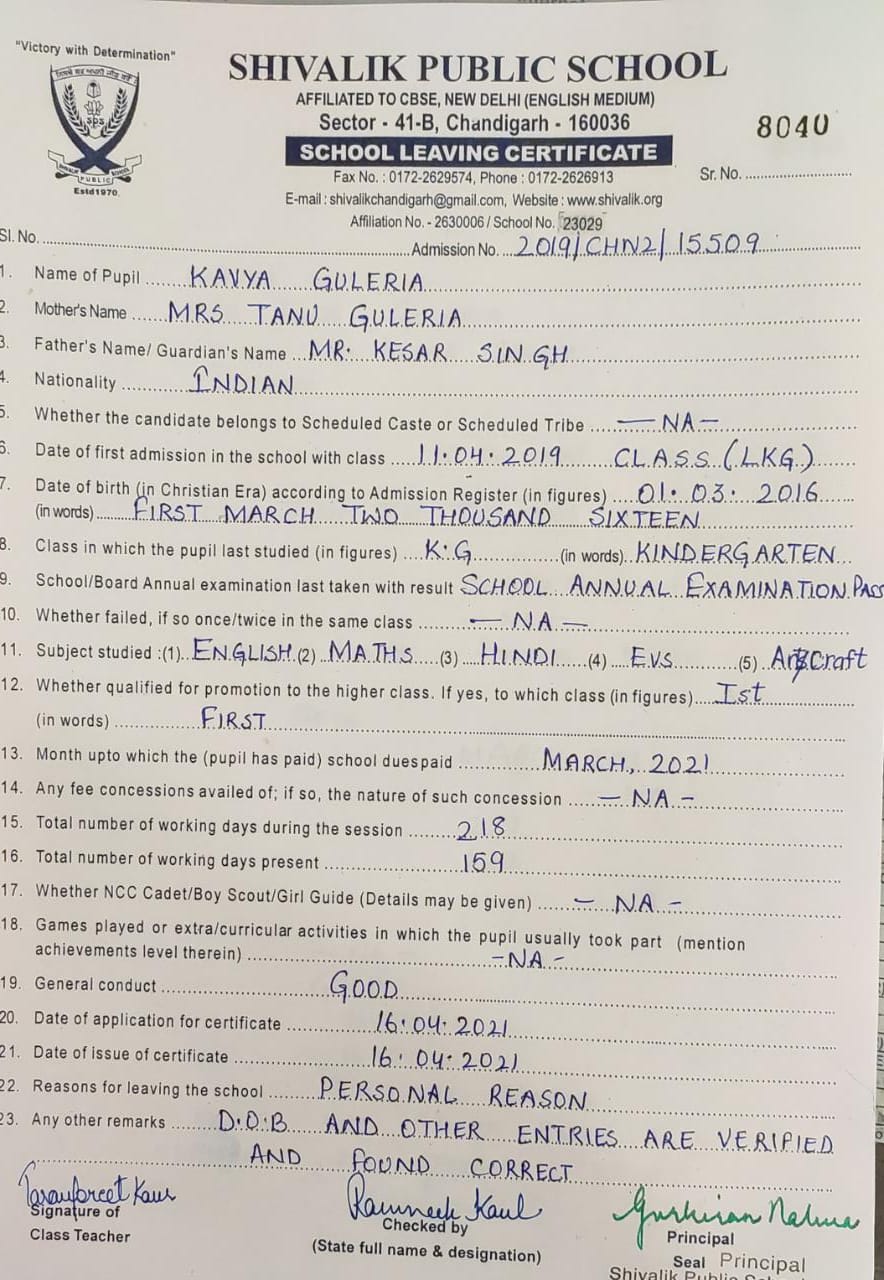 "Victory with Determination"
SHIVALIK PUBLIC SCHOOL
AFFILIATED TO CBSE, NEW DELHI (ENGLISH MEDIUM)
Sector - 41-B, Chandigarh - 160036
8040
SCHOOL LEAVING CERTIFICATE
Fax No. : 0172-2629574, Phone : 0172-2626913
Sr. No. ..........
E-mail : shivalikchandigarh@gmail.com, Website : www.shivalik.org
Affiliation No. - 2630006 / School No. 23029
sps
PUBLIC
Estd1970.
Sl. No. .......... Admission No. 2019/CHN2/15509
1. Name of Pupil ...... KAVYA GULERIA
2. Mother's Name ..... MRS TANU GULERIA
3. Father's Name/ Guardian's Name ... MR. KESAR SINGH
4. Nationality .......... INDIAN
5. Whether the candidate belongs to Scheduled Caste or Scheduled Tribe ..... — NA —
6. Date of first admission in the school with class .... 11.04.2019 CLASS (LKG)
7. Date of birth (in Christian Era) according to Admission Register (in figures) .... 01. 03. 2016
(in words) ........ FIRST MARCH TWO THOUSAND SIXTEEN
8. Class in which the pupil last studied (in figures) .... K.G .......... (in words).. KINDERGARTEN
9. School/Board Annual examination last taken with result SCHOOL ANNUAL EXAMINATION PASS
10. Whether failed, if so once/twice in the same class ........ — NA —
11. Subject studied :(1).. ENGLISH (2) MATHS (3) HINDI (4) EVS (5) Art/Craft
12. Whether qualified for promotion to the higher class. If yes, to which class (in figures).... Ist
(in words) .......... FIRST
13. Month upto which the (pupil has paid) school duespaid .......... MARCH, 2021
14. Any fee concessions availed of; if so, the nature of such concession ...... — NA -
15. Total number of working days during the session ........ 218
16. Total number of working days present .......... 159
17. Whether NCC Cadet/Boy Scout/Girl Guide (Details may be given) ...... — NA -
18. Games played or extra/curricular activities in which the pupil usually took part (mention
achievements level therein) .......... -NA -
19. General conduct .......... GOOD
20. Date of application for certificate .......... 16.04.2021
21. Date of issue of certificate .......... 16.04.2021
22. Reasons for leaving the school ........ PERSONAL REASON
23. Any other remarks ........ D.O.B AND OTHER ENTRIES ARE VERIFIED
AND FOUND CORRECT
Taranpreet Kaur Ramneek Kaul Gurkiran
Signature of
Class Teacher
Checked by
(State full name & designation)
Principal
Seal Principal
Shivalik Public